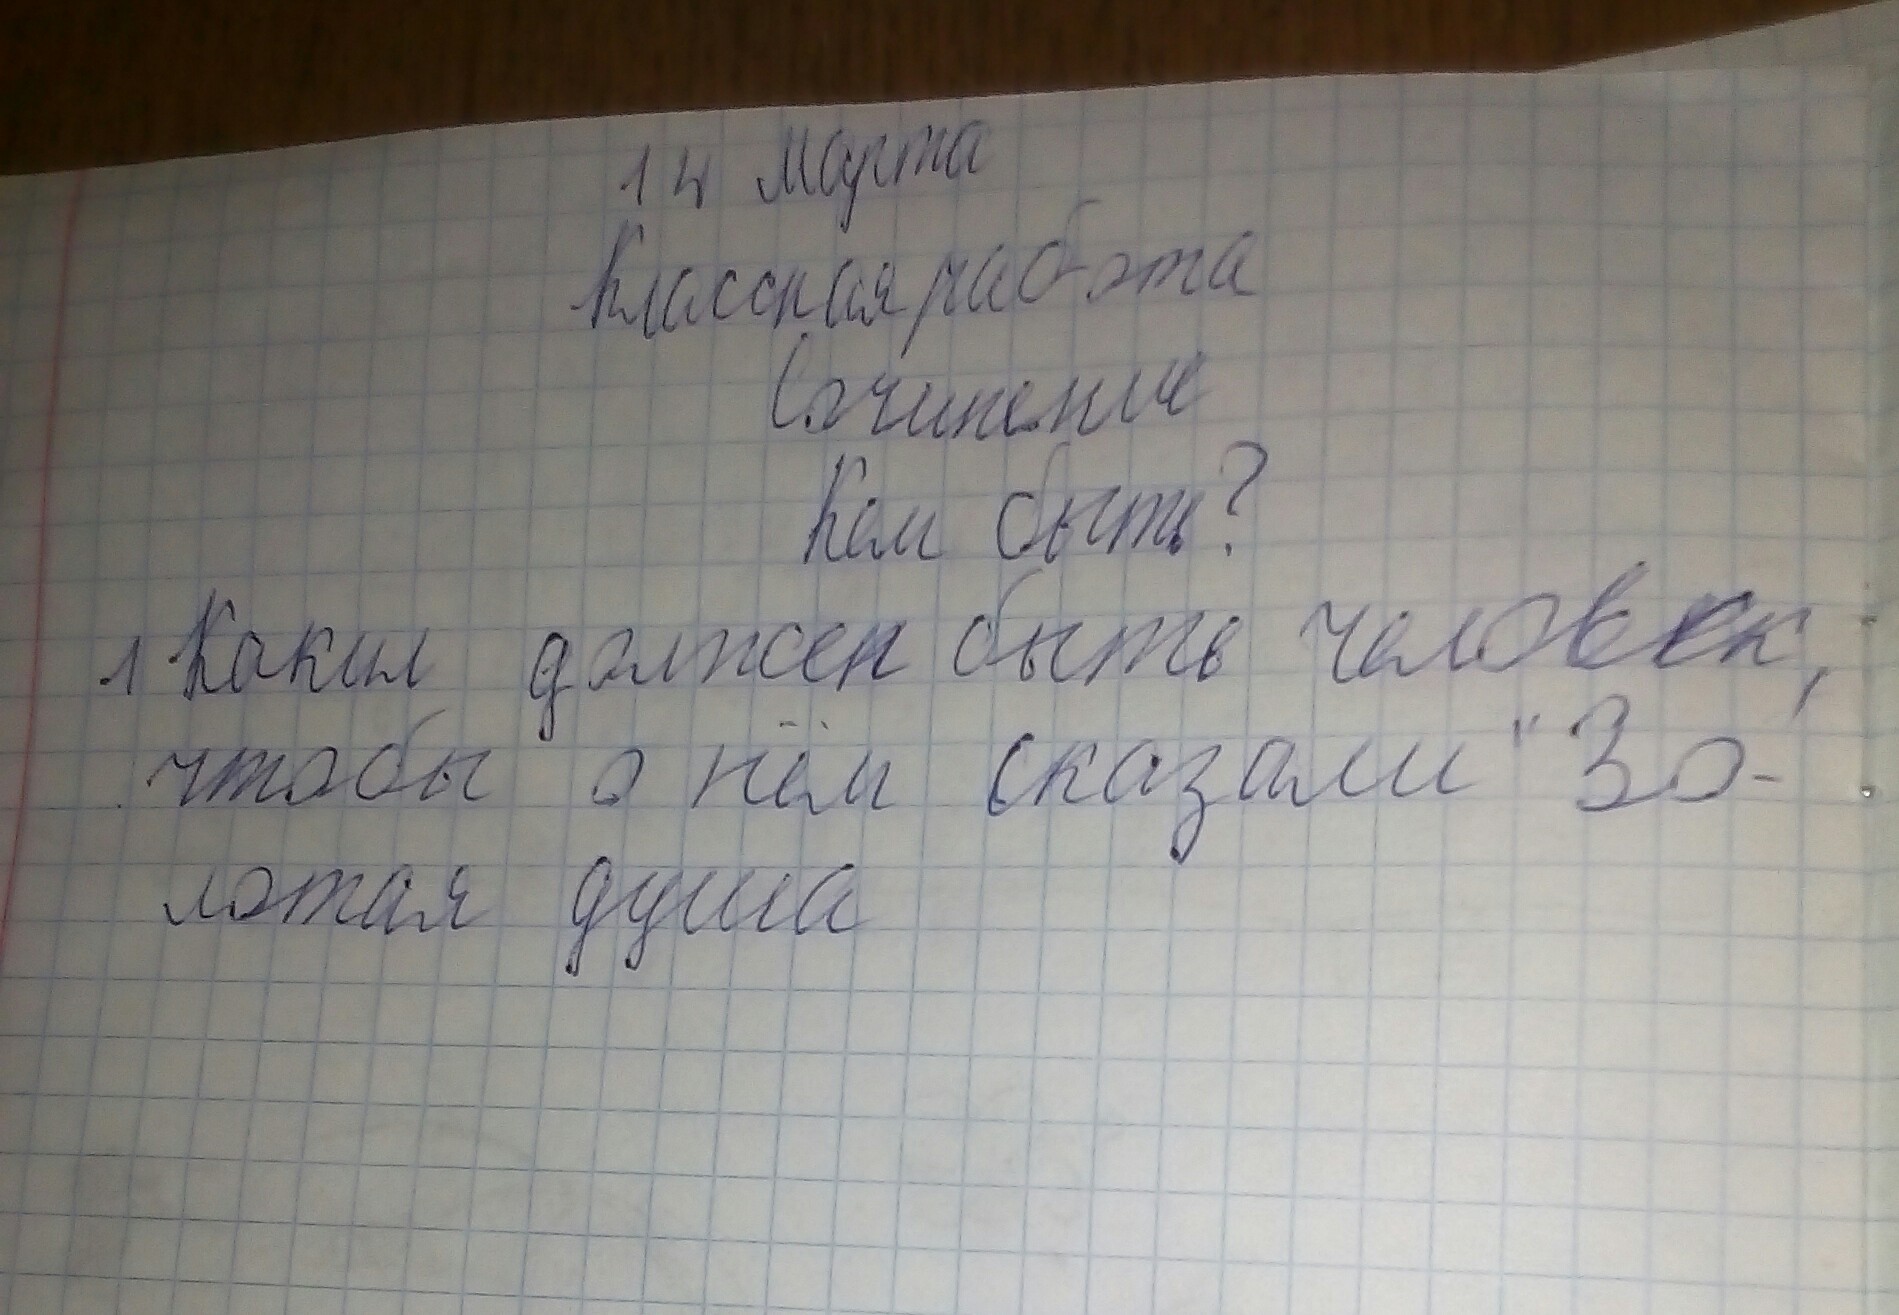 14 марта
Классная работа
Сочинение
Кем быть?
1 Каким должен быть человек,
чтобы о нём сказали "Зо-
лотая душа